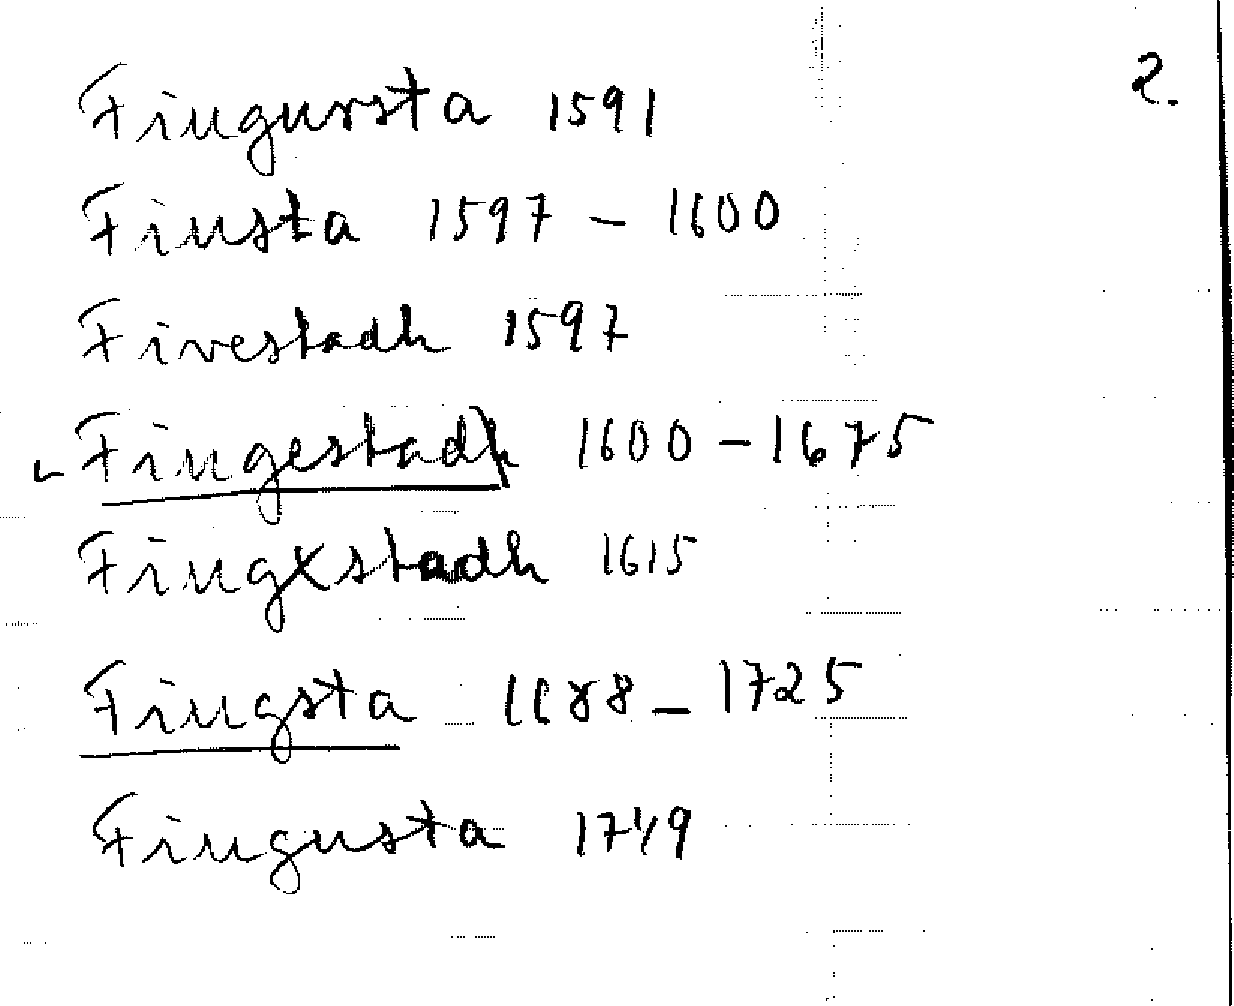 2.
Fingursta 1591
Finsta 1597 - 1600
Finestadh 1597
Fingestadh 1600 - 1675
Fingxstadh 1615
Fingsta 1688 - 1725
Fingusta 1749